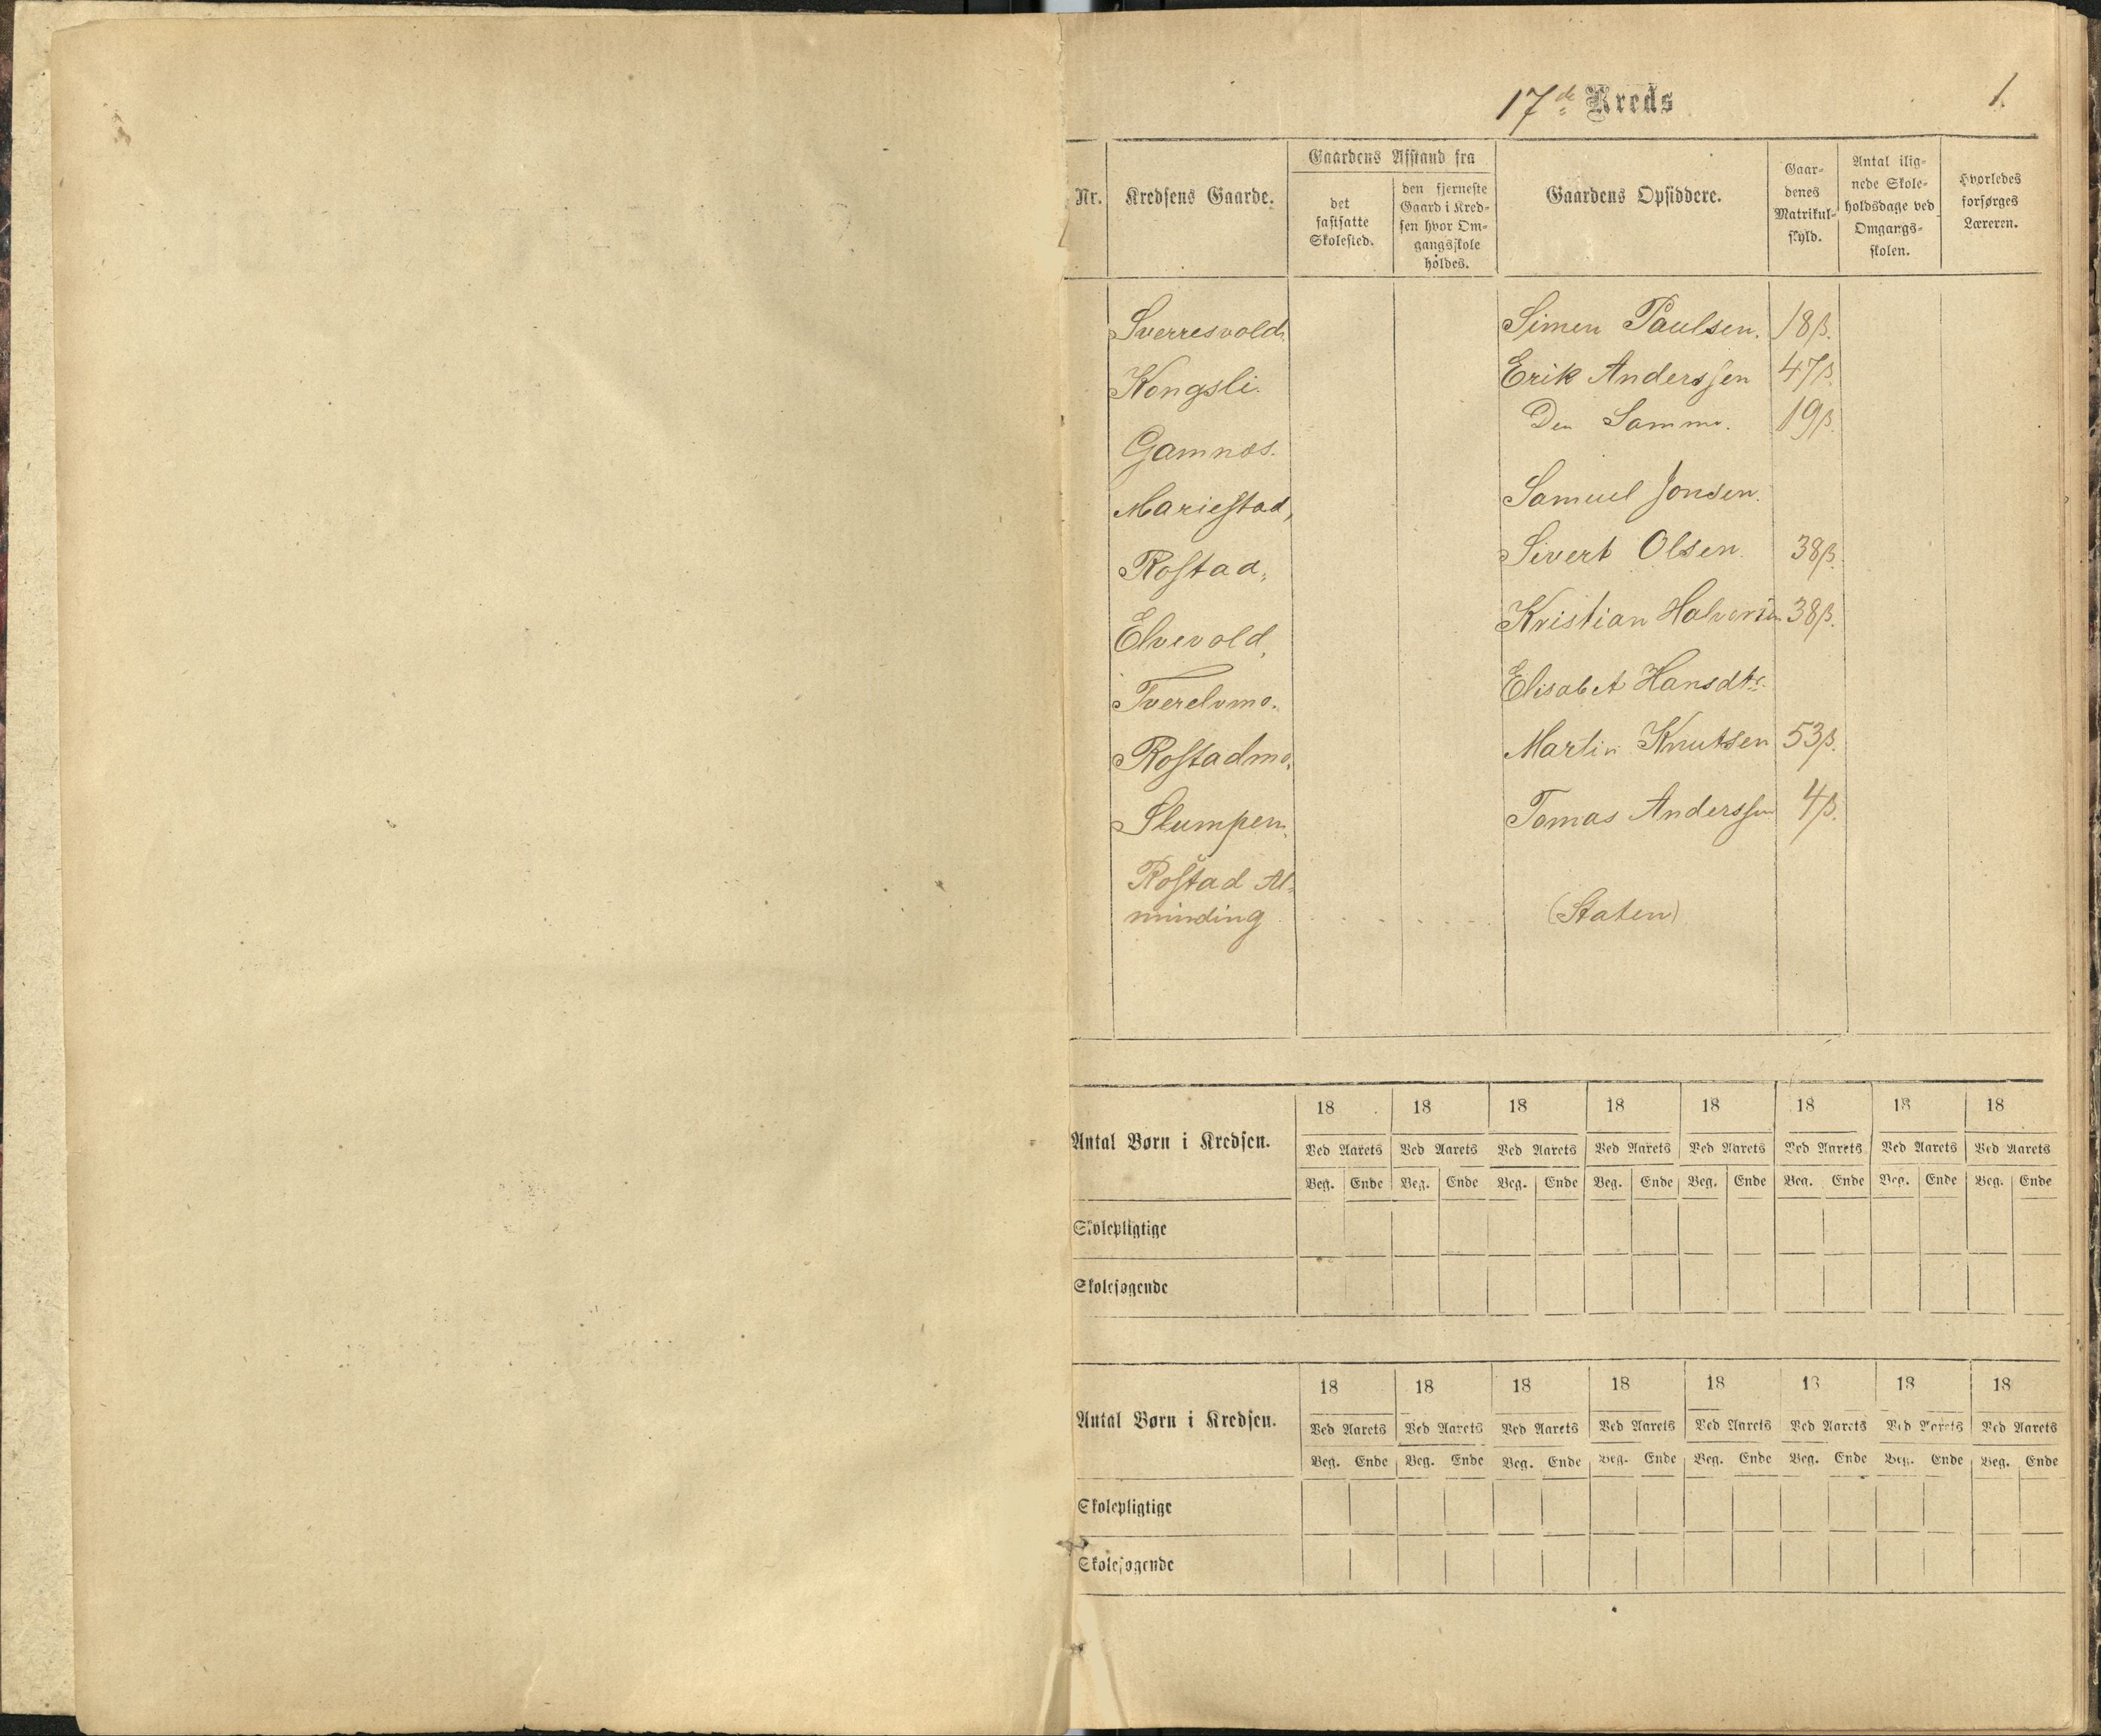 17de Kreds
1.
Nr.
Kredsens Gaarde.
Gaardens Afstand fra
det
fastsatte
Skolested.
den fjerneste
Gaard i Kred-
sen hvor Om-
gangsskole
holdes.
Gaardens Opsiddere.
Gaar-
denes
Matrikul-
skyld.
Antal ilig-
nede Skole-
holdsdage ved
Omgangs-
skolen.
Hvorledes
forsørges
Læreren.
Sverresvold. Simen Paulsen. 18ß.
Kongsli. Erik Anderssen 47ß.
Gamnæs. Den Samme. 19ß.
Mariestad, Samuel Jonsen.
Rostad, Sivert Olsen. 38ß.
Elvevold, Kristian Halvorsen 38ß.
Tverelvmo. Elisabet Hansdtr.
Rostadmo, Martin Knutsen 53ß.
Slumpen. Tomas Anderssen 4ß.
Rostad Al-
minding . . . . . . . (Staten)
Antal Børn i Kredsen.
18 18 18 18 18 18 18 18
Ved Aarets Ved Aarets Ved Aarets Ved Aarets Ved Aarets Ved Aarets Ved Aarets Ved Aarets
Beg. Ende Beg. Ende Beg. Ende Beg. Ende Beg. Ende Beg. Ende Beg. Ende Beg. Ende
Skolepligtige
Skolesøgende
Antal Børn i Kredsen.
18 18 18 18 18 18 18 18
Ved Aarets Ved Aarets Ved Aarets Ved Aarets Ved Aarets Ved Aarets Ved Aarets Ved Aarets
Beg. Ende Beg. Ende Beg. Ende Beg. Ende Beg. Ende Beg. Ende Beg. Ende Beg. Ende
Skolepligtige
Skolesøgende